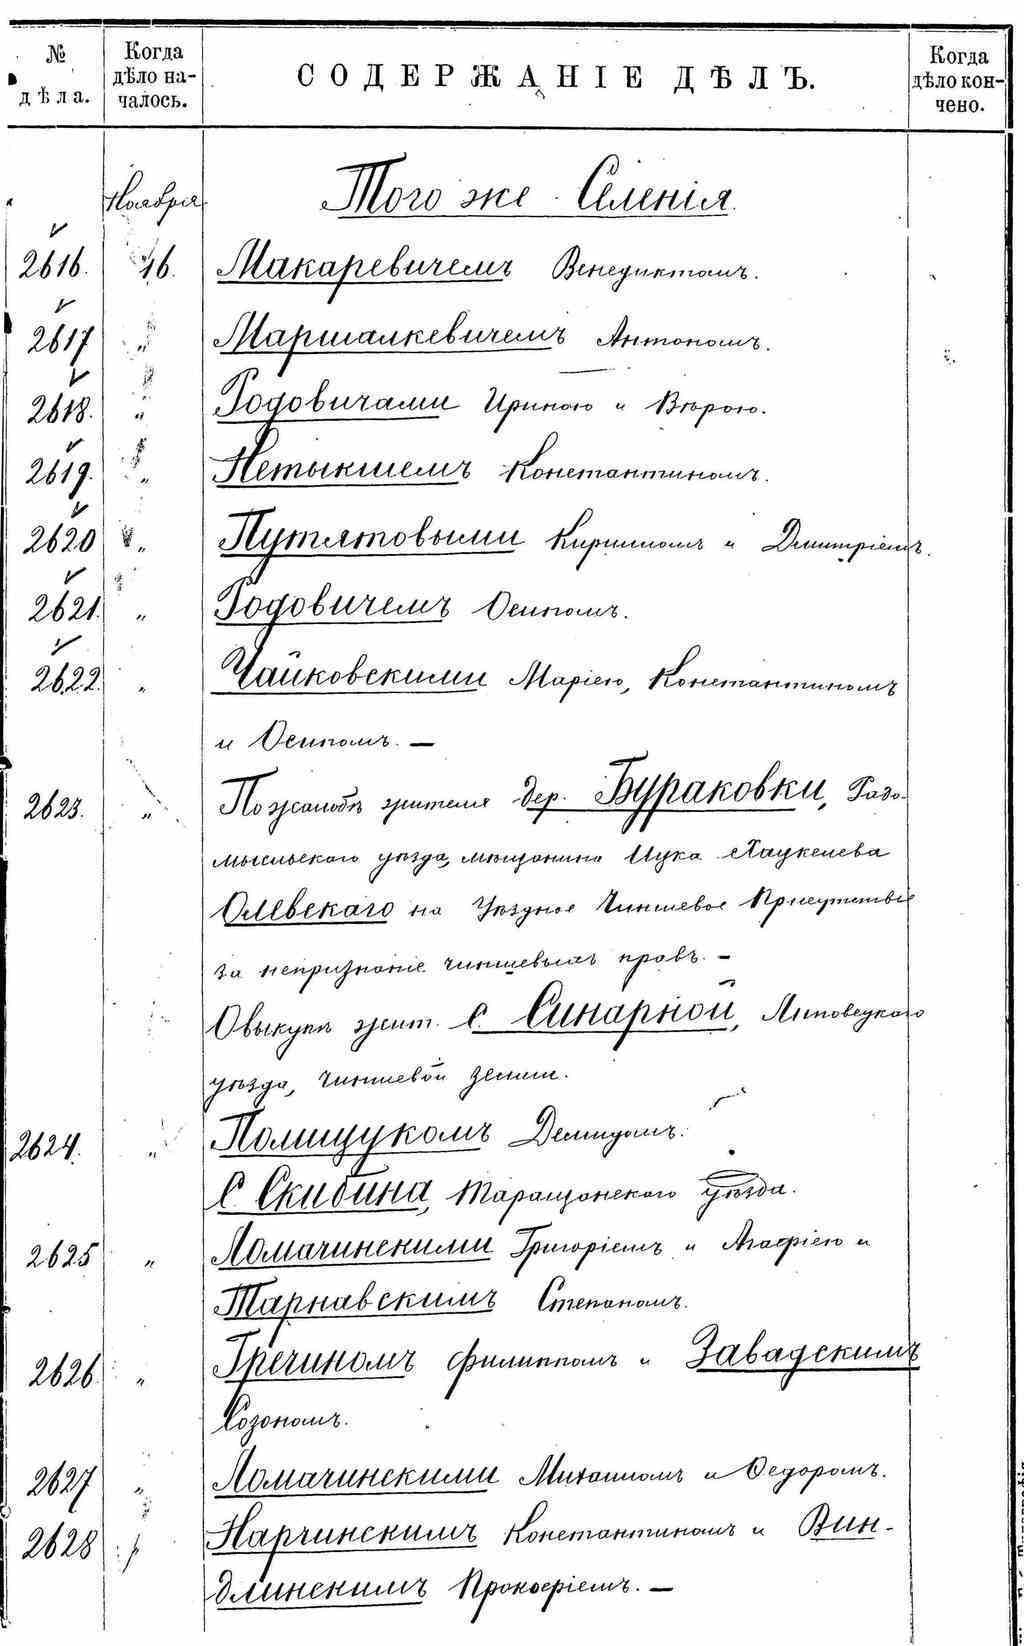 № дѣла.
Когда дѣло началось.
СОДЕРЖАНІЕ ДѢЛЪ.
Когда дѣло кончено.
Ноября
Того же Селенія.
2616. 16. Макаревичемъ Венедиктомъ.
2617 „ Маршалкевичемъ Антономъ.
2618. „ Родовичами Ириною и Вѣрою.
2619. „ Нетыкшемъ Константиномъ.
2620 „ Путятовыми Кириломъ и Дмитріемъ.
2621. „ Родовичемъ Осипомъ.
2622. „ Чайковскими Маріею, Константиномъ
и Осипомъ. —
2623. „ По жалобѣ жителя дер. Бураковки, Радо-
мысльскаго уѣзда, мѣщанина Ицка
Олевскаго на Уѣздное Чиншевое Присутствіе
за непризнаніе чиншевыхъ правъ. —
О выкупѣ жит. с. Синарной, Липовецкаго
уѣзда, чиншевой земли.
2624. „ Полищукомъ Демидомъ.
С. Скибина, Таращанскаго уѣзда.
2625 „ Ломачинскими Григоріемъ и Агафіею и
Тарнавскимъ Степаномъ.
2626 „ Гречиномъ Филиппомъ и Завадскимъ
Созономъ.
2627 „ Ломачинскими Михаиломъ и Ѳедоромъ.
2628 „ Нарчинскимъ Константиномъ и Вин-
длинскимъ Прокофіемъ. —